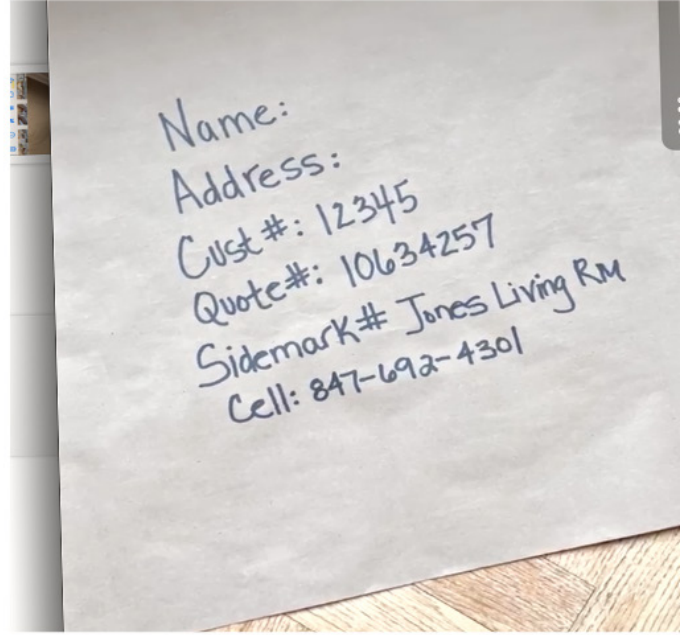 Name:
Address:
Cust#: 12345
Quote#: 10634257
Sidemark# Jones Living RM
Cell: 847-692-4301